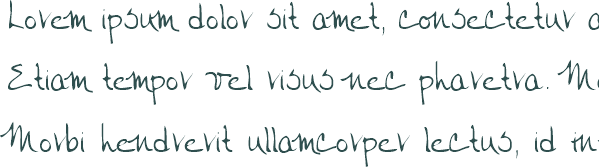 Lorem ipsum dolor sit amet, consectetur a
Etiam tempor vel risus nec pharetra. Ma
Morbi hendrerit ullamcorper lectus, id in